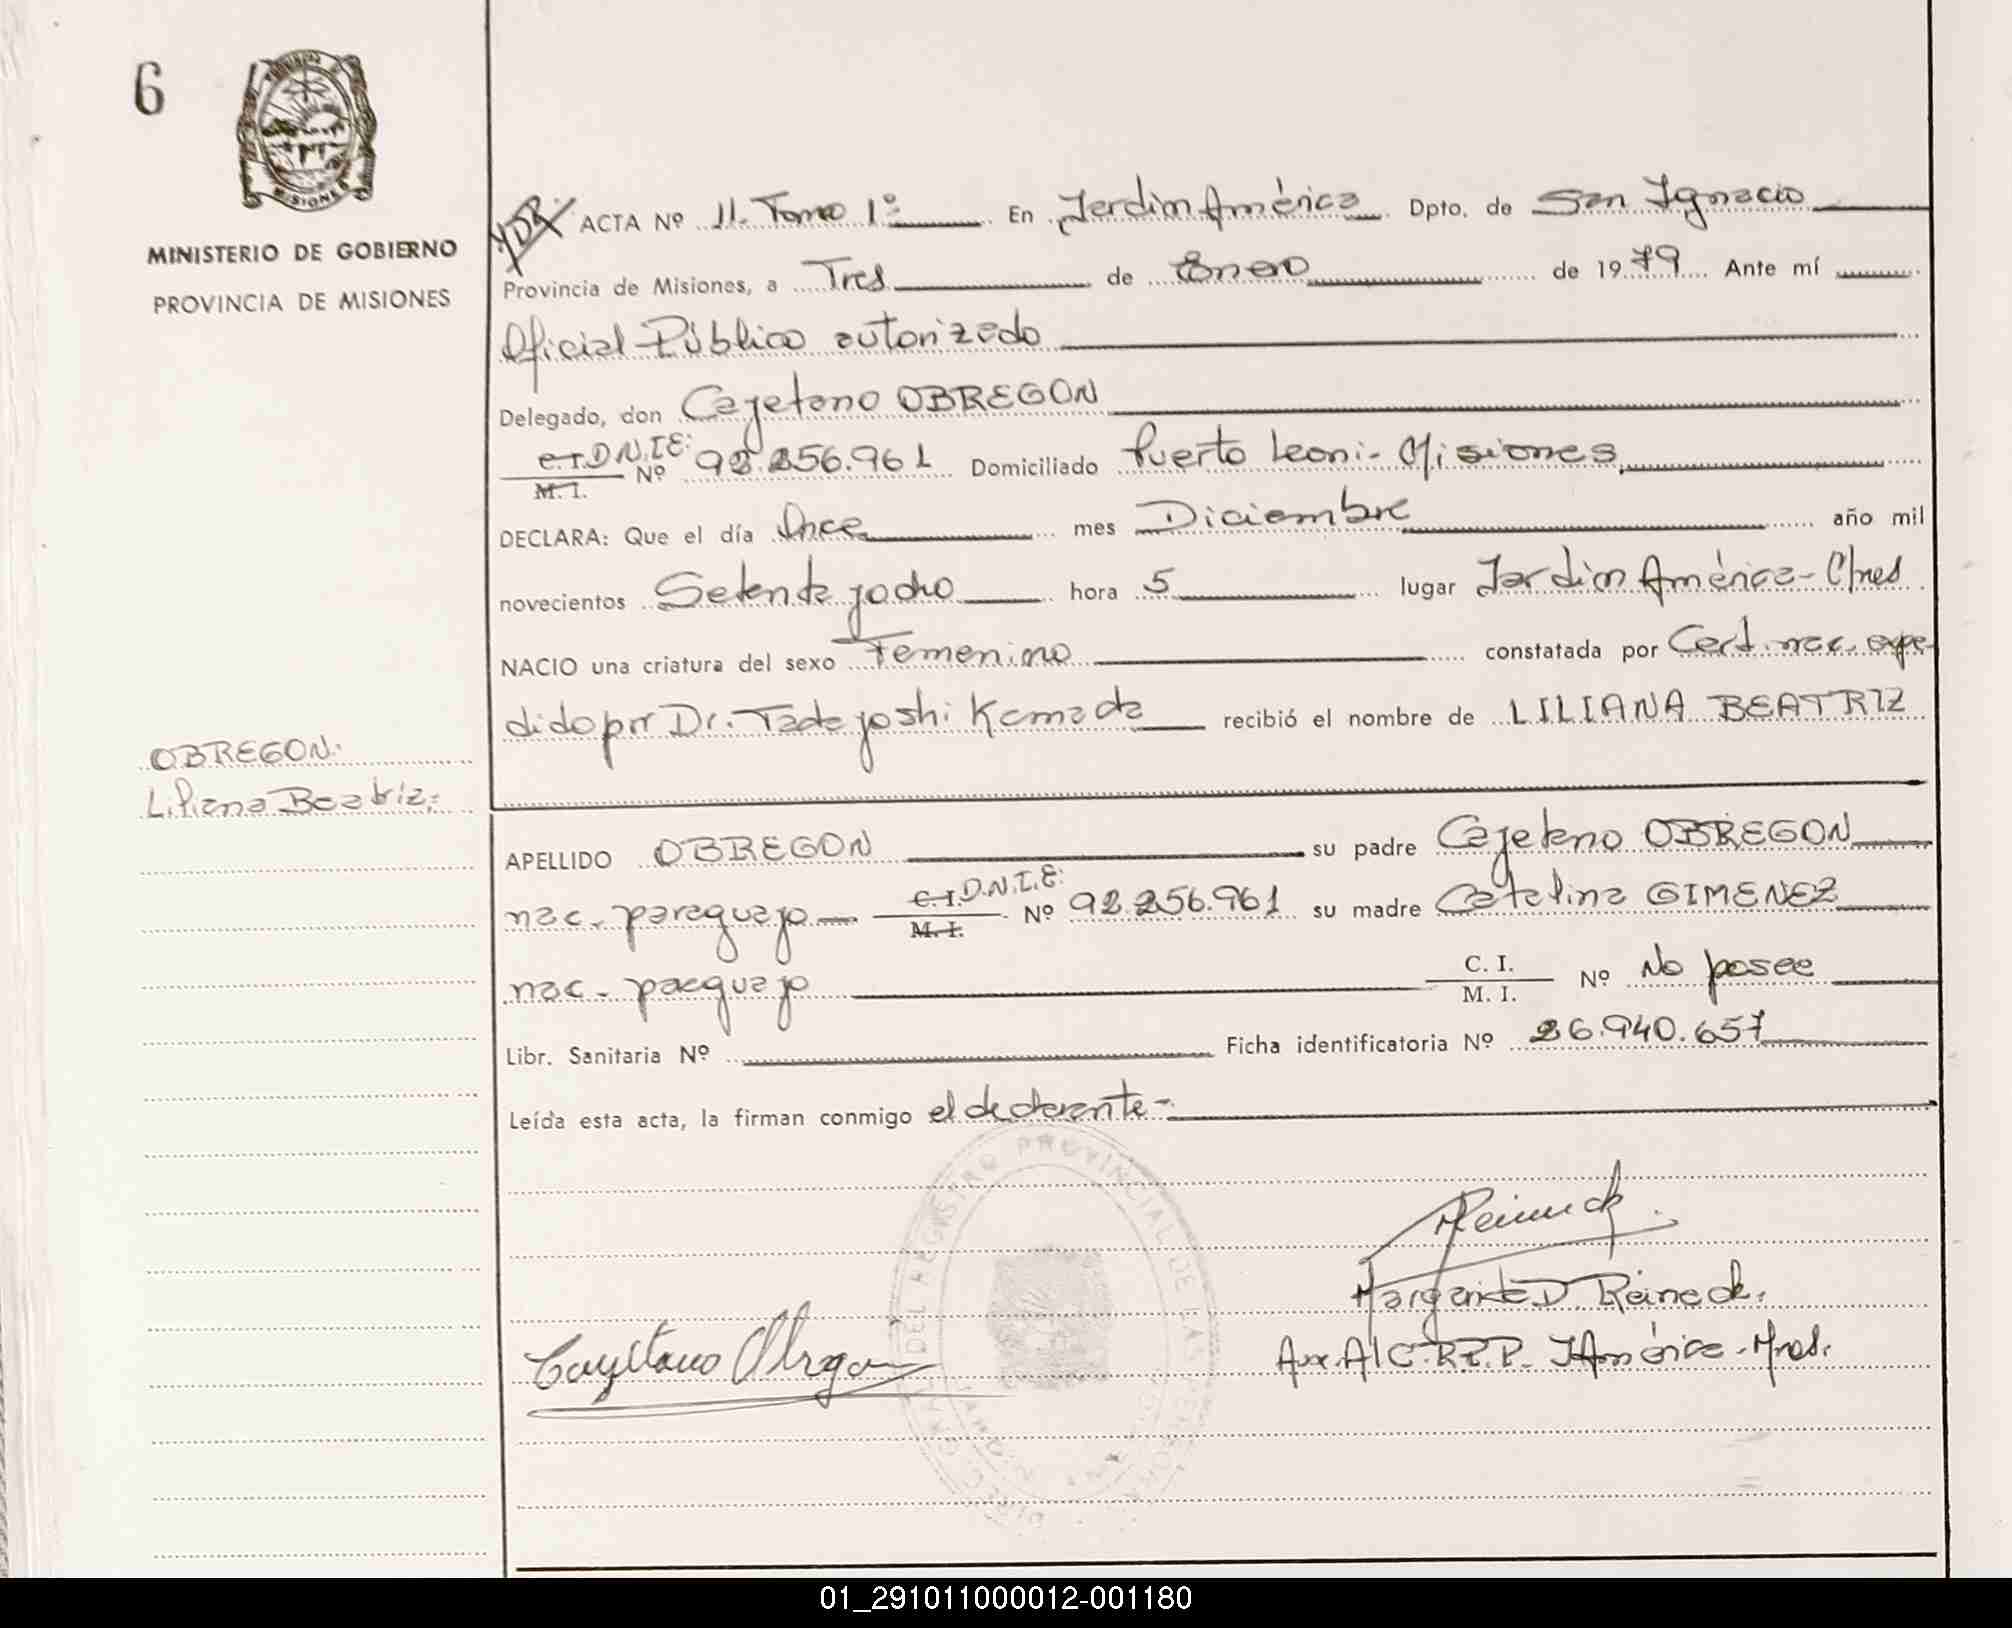 6
MINISTERIO DE GOBIERNO
PROVINCIA DE MISIONES
ACTA Nº 11. Tomo 1º En Jardin América Dpto. de San Ignacio
Provincia de Misiones, a Tres de Enero de 1979 Ante mí
Oficial Público autorizado
Delegado, don Cayetano OBREGON
C.I. D.N.I.E: M. I. Nº 92.256.961 Domiciliado Puerto Leoni- Misiones,
DECLARA: Que el día Once mes Diciembre año mil
novecientos Setenta yocho hora 5 lugar Jardin América-
NACIO una criatura del sexo Femenino constatada por Cert. nac. expe-
dido por Dr. Tadayoshi Kamada recibió el nombre de LILIANA BEATRIZ
OBREGON.
Liliana Beatriz.
APELLIDO OBREGON su padre Cayetano OBREGON
nac. paraguayo C.I. D.N.I.E: M. I. Nº 92.256.961 su madre Catalina GIMENEZ
nac- paeguayo C. I. M. I. Nº No posee
Libr. Sanitaria Nº Ficha identificatoria Nº 26.940.657
Leída esta acta, la firman conmigo el declarante-
DEL REGISTRO PROVINCIAL DE LAS PERSONAS
Reineck
Margarita D. Reineck.
Cayetano Obregon
Aux. A/C. R.P.P. J América-Mnes.
01_291011000012-001180